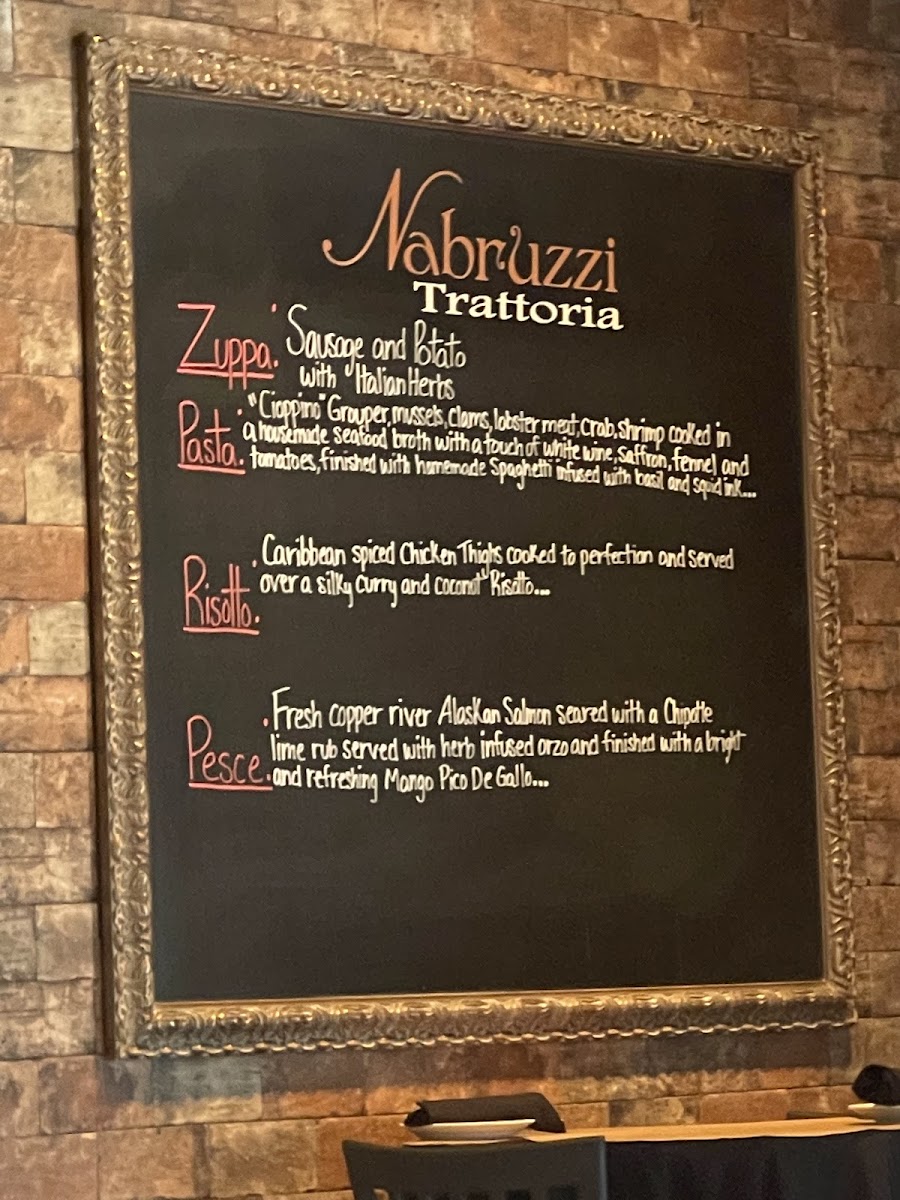 Nabruzzi
Trattoria
Zuppa: Sausage and Potato
with Italian Herbs
Pasta: "Cioppino" Grouper, mussels, clams, lobster meat, crab, shrimp cooked in
a housemade seafood broth with a touch of white wine, saffron, fennel and
tomatoes, finished with homemade Spaghetti infused with basil and squid ink...
Risotto: Caribbean spiced Chicken Thighs cooked to perfection and served
over a silky curry and coconut Risotto...
Pesce: Fresh copper river Alaskan Salmon seared with a Chipotle
lime rub served with herb infused orzo and finished with a bright
and refreshing Mango Pico De Gallo...